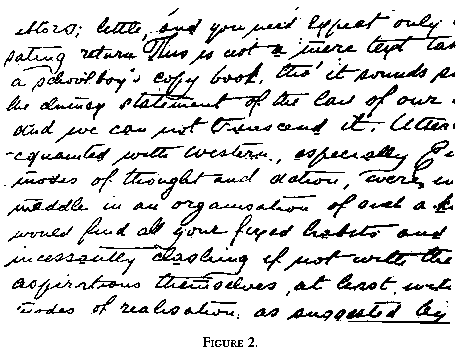 efforts; little, and you need expect only
sating return This is not a mere text
a schoolboy's copy book, tho' it sounds
the dainty statement of the law of our
and we can not transcend it. Utter
cquainted with Western, especially
modes of thought and action, were
meddle in an organisation of such a
would find all your fixed habits and
incessantly clashing if not with the
aspirations themselves, at least with
modes of realisation, as suggested by
FIGURE 2.